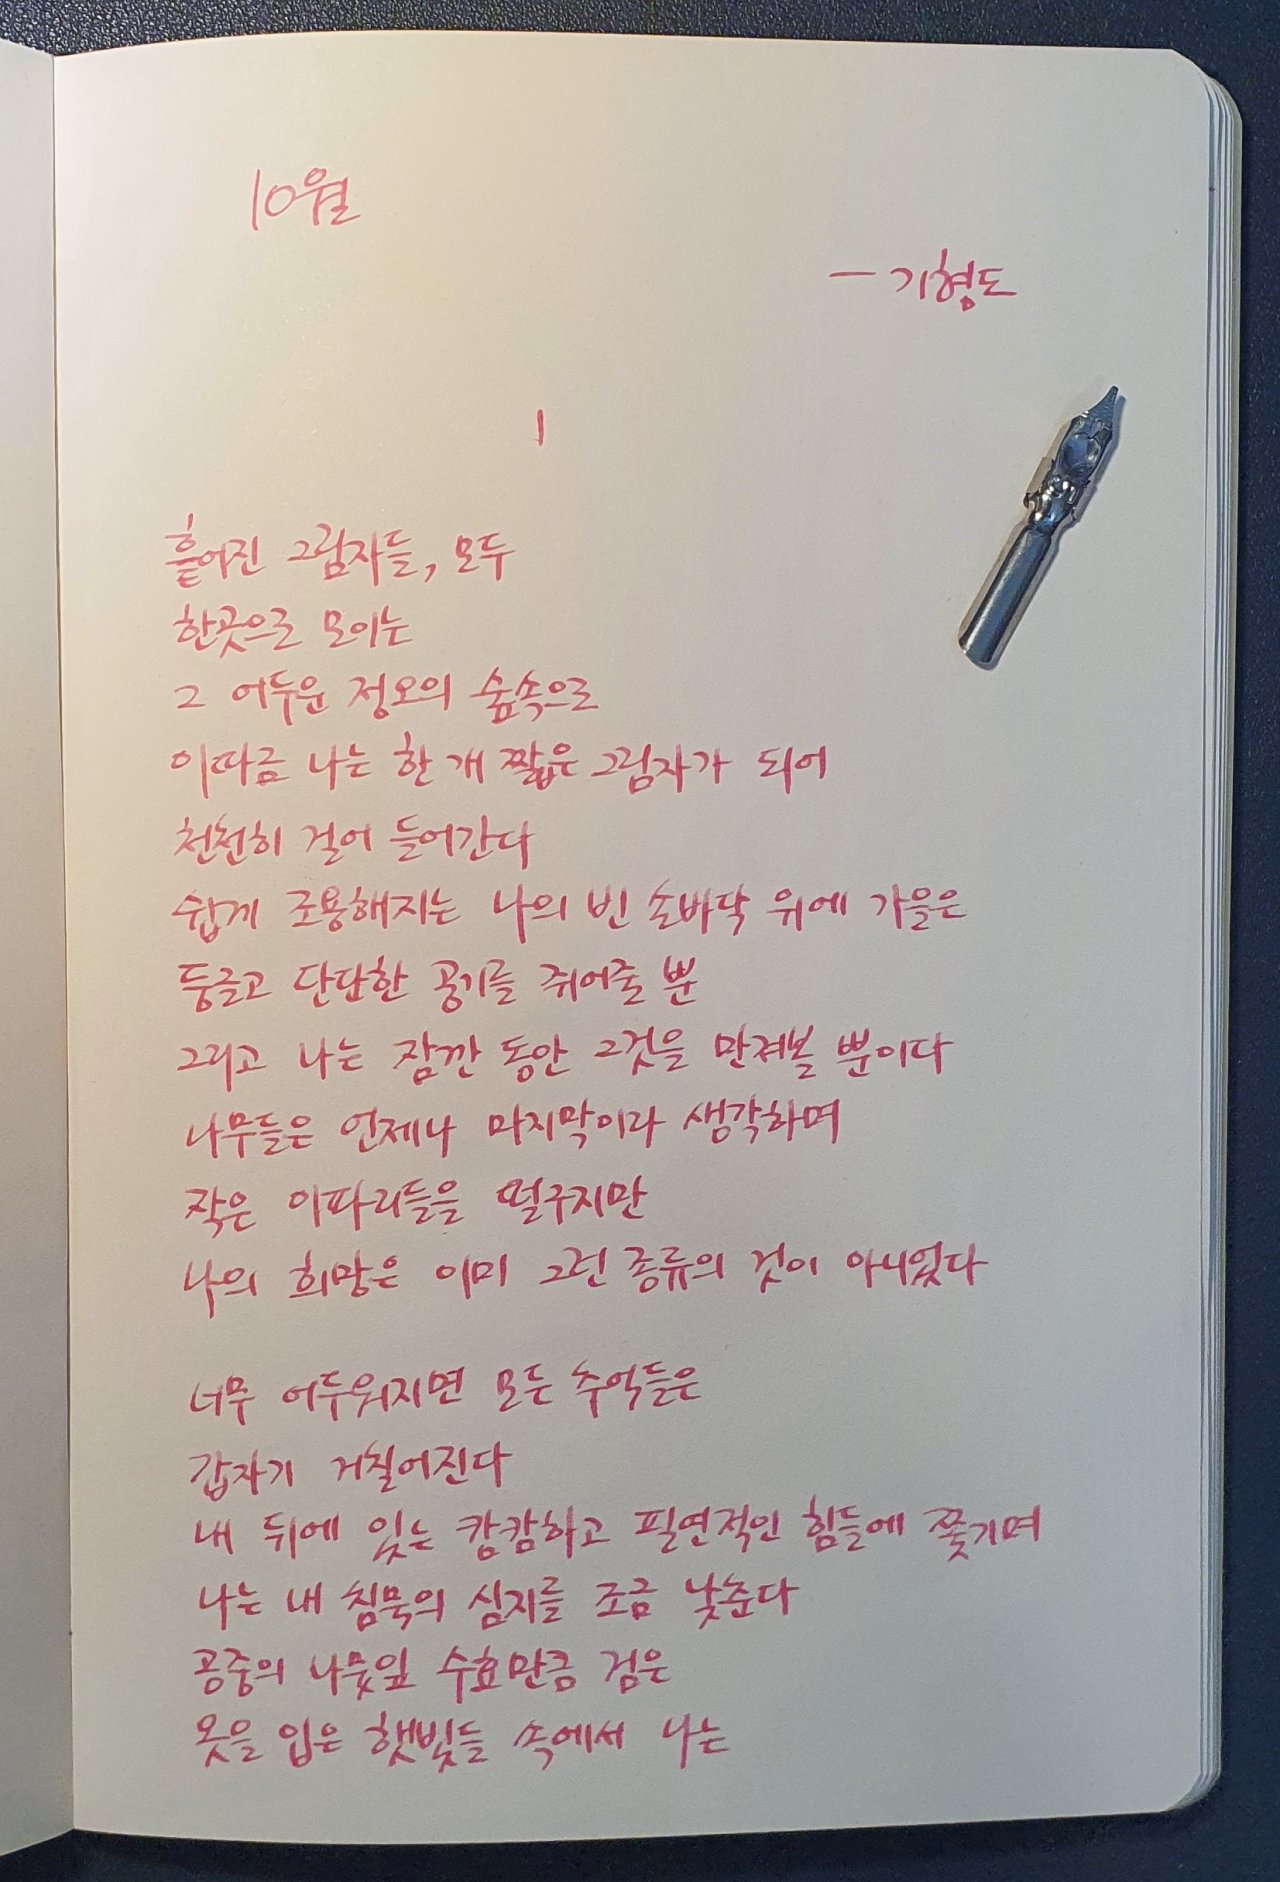 10월
— 기형도
1
흩어진 그림자들, 모두
한곳으로 모이는
그 어두운 정오의 숲속으로
이따금 나는 한 개 짧은 그림자가 되어
천천히 걸어 들어간다
쉽게 조용해지는 나의 빈 손바닥 위에 가을은
둥글고 단단한 공기를 쥐어줄 뿐
그리고 나는 잠깐 동안 그것을 만져볼 뿐이다
나무들은 언제나 마지막이라 생각하며
작은 이파리들을 떨구지만
나의 희망은 이미 그런 종류의 것이 아니었다
너무 어두워지면 모든 추억들은
갑자기 거칠어진다
내 뒤에 있는 캄캄하고 필연적인 힘들에 쫓기며
나는 내 침묵의 심지를 조금 낮춘다
공중의 나뭇잎 수효만큼 검은
옷을 입은 햇빛들 속에서 나는